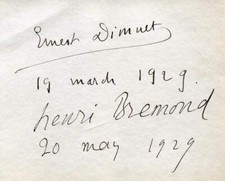 Ernest Dimnet
19 march 1929.
henri Bremond
20 may 1929